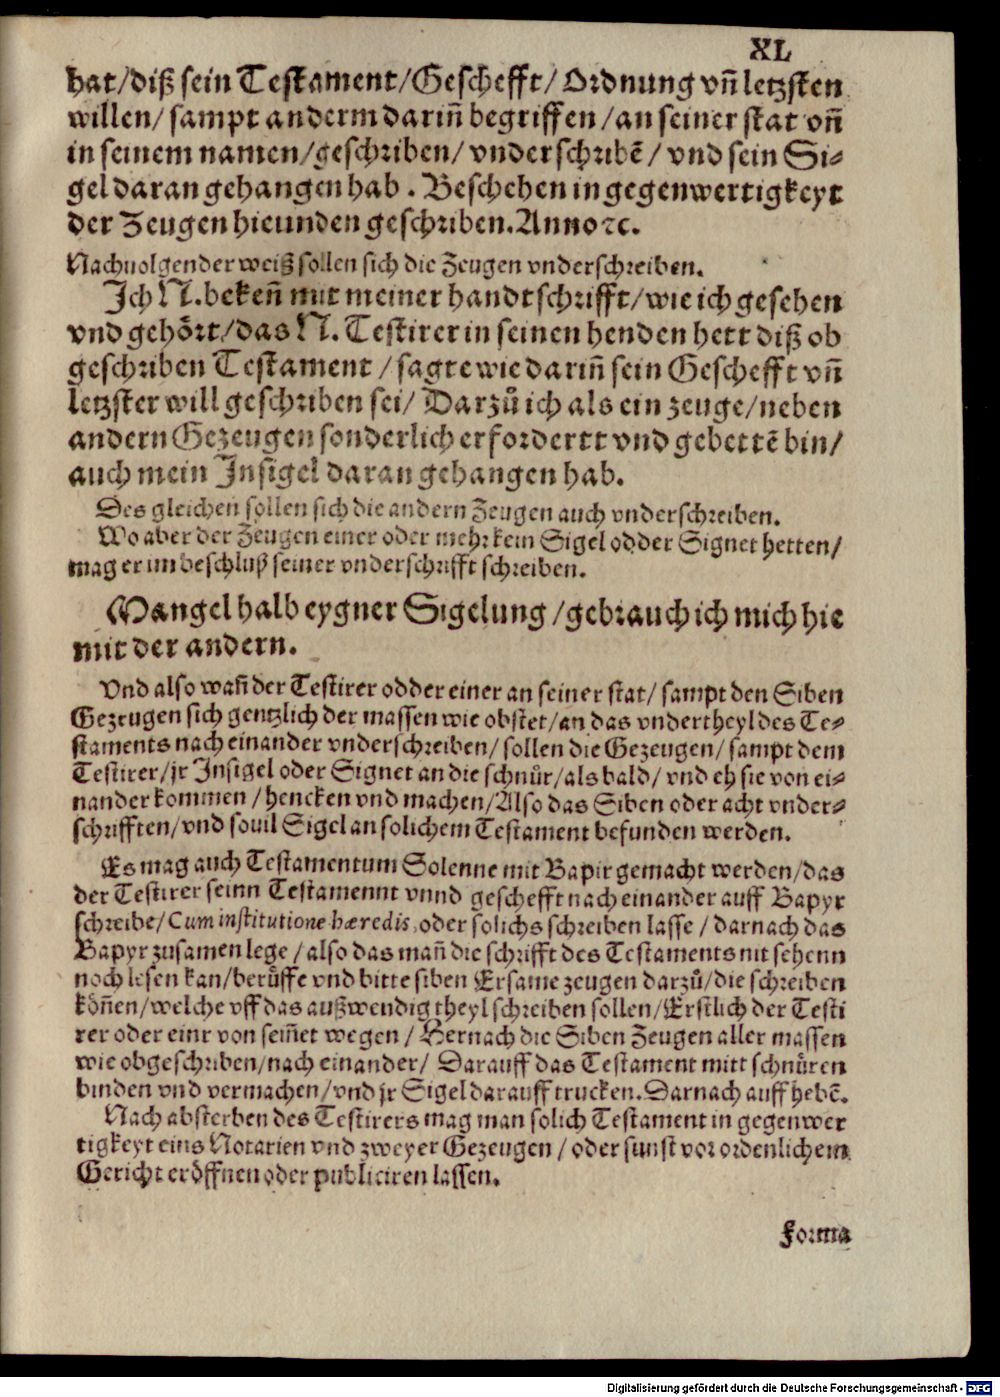 XL
hat/diß sein Testament/Geschefft/Ordnung vñ letzsten
willen/ sampt anderm dariñ begriffen/an seiner stat vñ
in seinem namen/geschriben/ vnderschribē/ vnd sein Si-
gel daran gehangen hab. Beschehen in gegenwertigkeyt
der Zeugen hieunden geschriben. Anno ꝛc.
Nachuolgender weiß sollen sich die Zeugen vnderschreiben.
Ich N. bekeñ mit meiner handtschrifft/wie ich gesehen
vnd gehoͤrt/das N. Testirer in seinen henden hett diß ob
geschriben Testament/sagte wie dariñ sein Geschefft vñ
letzster will geschriben sei/ Darzuͦ ich als ein zeuge/neben
andern Gezeugen sonderlich erfordertt vnd gebettē bin/
auch mein Insigel daran gehangen hab.
Des gleichen sollen sich die andern Zeugen auch vnderschreiben.
Wo aber der Zeugen einer oder mehr kein Sigel odder Signet hetten/
mag er im beschluß seiner vnderschrifft schreiben.
Mangel halb eygner Sigelung/gebrauch ich mich hie
mit der andern.
Vnd also wañ der Testirer odder einer an seiner stat/ sampt den Siben
Gezeugen sich gentzlich der massen wie obstet/an das vndertheyl des Te-
staments nach einander vnderschreiben/ sollen die Gezeugen/ sampt dem
Testirer/jr Insigel oder Signet an die schnuͤr/als bald/ vnd eh sie von ei-
nander kommen/hencken vnd machen/Also das Siben oder acht vnder-
schrifften/vnd souil Sigel an solichem Testament befunden werden.
Es mag auch Testamentum Solenne mit Bapir gemacht werden/das
der Testirer seinn Testamennt vnnd geschefft nach einander auff Bapyr
schreibe/Cum institutione hæredis, oder solichs schreiben lasse/darnach das
Bapyr zusamen lege/also das mañ die schrifft des Testaments nit sehenn
noch lesen kan/beruͤffe vnd bitte siben Ersame zeugen darzuͦ/die schreiben
koͤñen/welche vff das außwendig theyl schreiben sollen/Erstlich der Testi
rer oder einr von seiñet wegen/ Hernach die Siben Zeugen aller massen
wie obgeschriben/nach einander/ Darauff das Testament mitt schnuͤren
binden vnd vermachen/vnd jr Sigel darauff trucken. Darnach auff hebē.
Nach absterben des Testirers mag man solich Testament in gegenwer
tigkeyt eins Notarien vnd zweyer Gezeugen/oder sunst vor ordenlichem
Gericht eroͤffnen oder publiciren lassen.
Forma
Digitalisierung gefördert durch die Deutsche Forschungsgemeinschaft - DFG